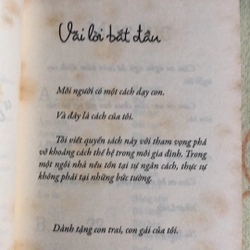 Vài lời bắt đầu
Mỗi người có một cách dạy con.
Và đây là cách của tôi.
Tôi viết quyển sách này với tham vọng phá
vỡ khoảng cách thế hệ trong mỗi gia đình. Trong
một ngôi nhà nếu tồn tại sự ngăn cách, thực sự
không phải tại những bức tường.
Dành tặng con trai, con gái của tôi.